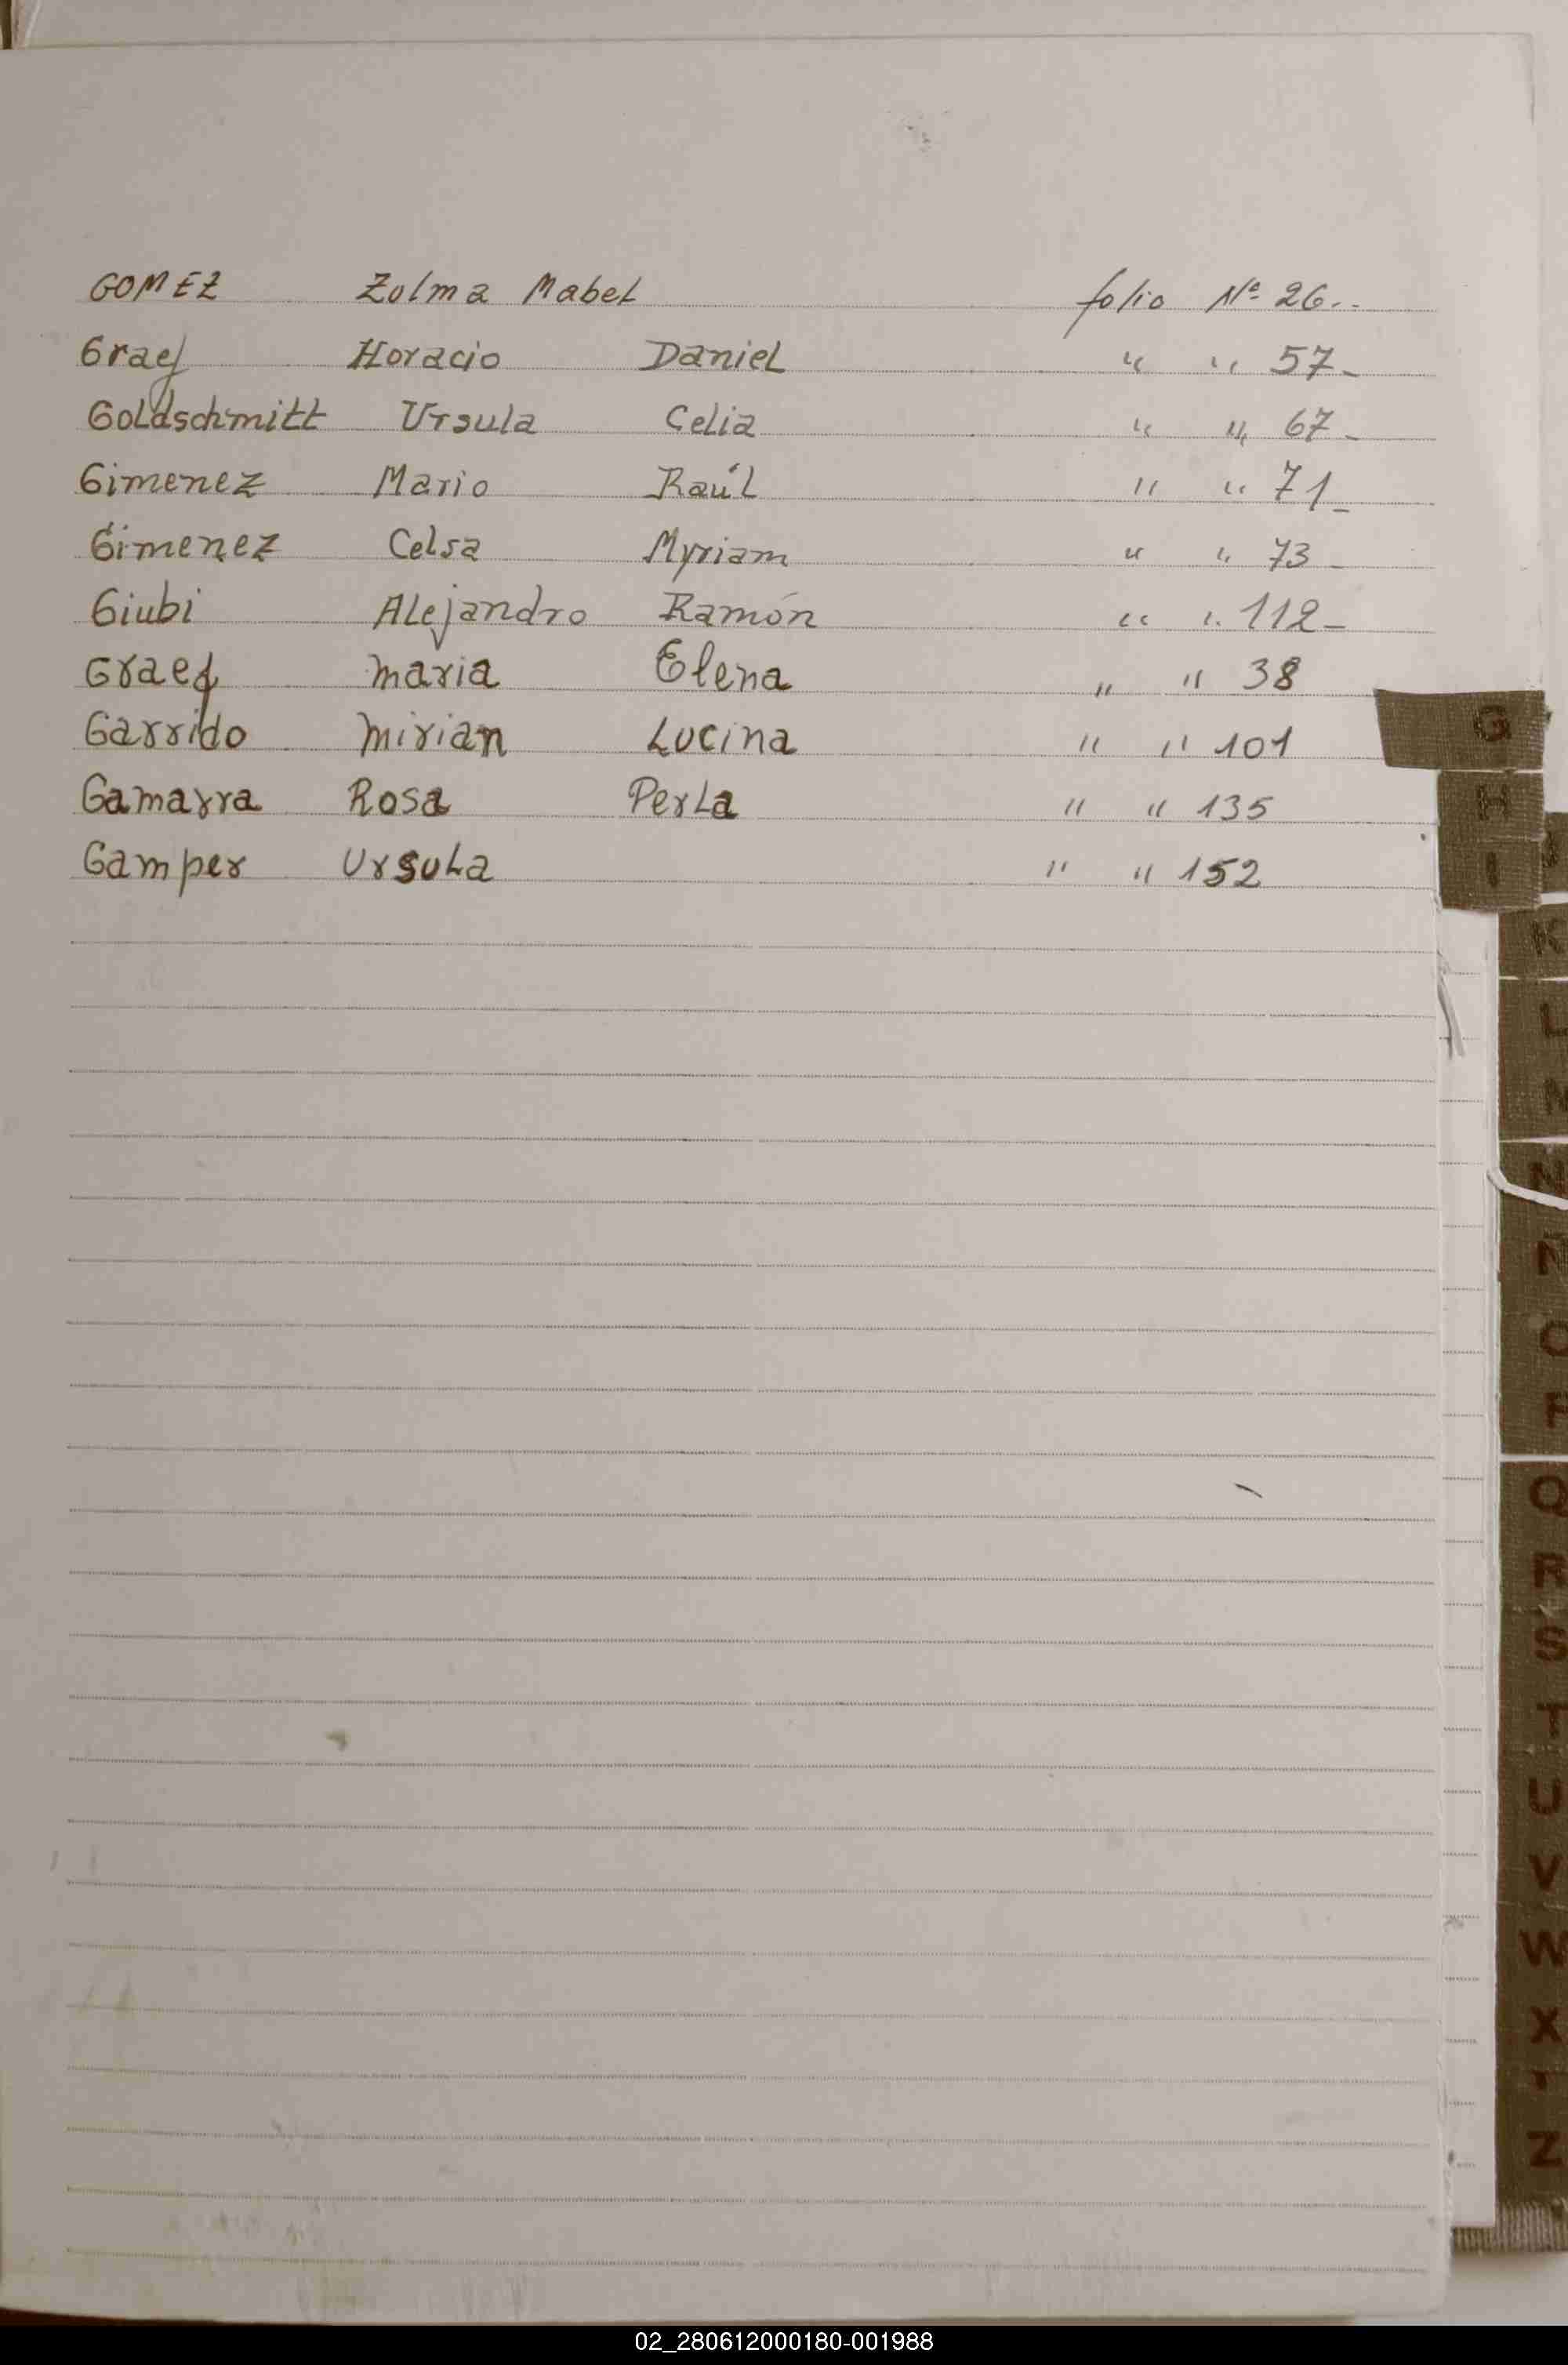 GOMEZ Zulma Mabel folio Nº 26..
Graef Horacio Daniel " " 57-
Goldschmitt Ursula Celia " " 67-
Gimenez Mario Raúl " " 71-
Gimenez Celsa Myriam " " 73-
Giubi Alejandro Ramón " " 112-
Graef Maria Elena " " 38
Garrido Mirian Lucina " " 101
Gamarra Rosa Perla " " 135
Gamper Ursula " " 152
G
H
I
K
L
N
O
Q
R
S
T
U
V
W
X
Z
02_280612000180-001988